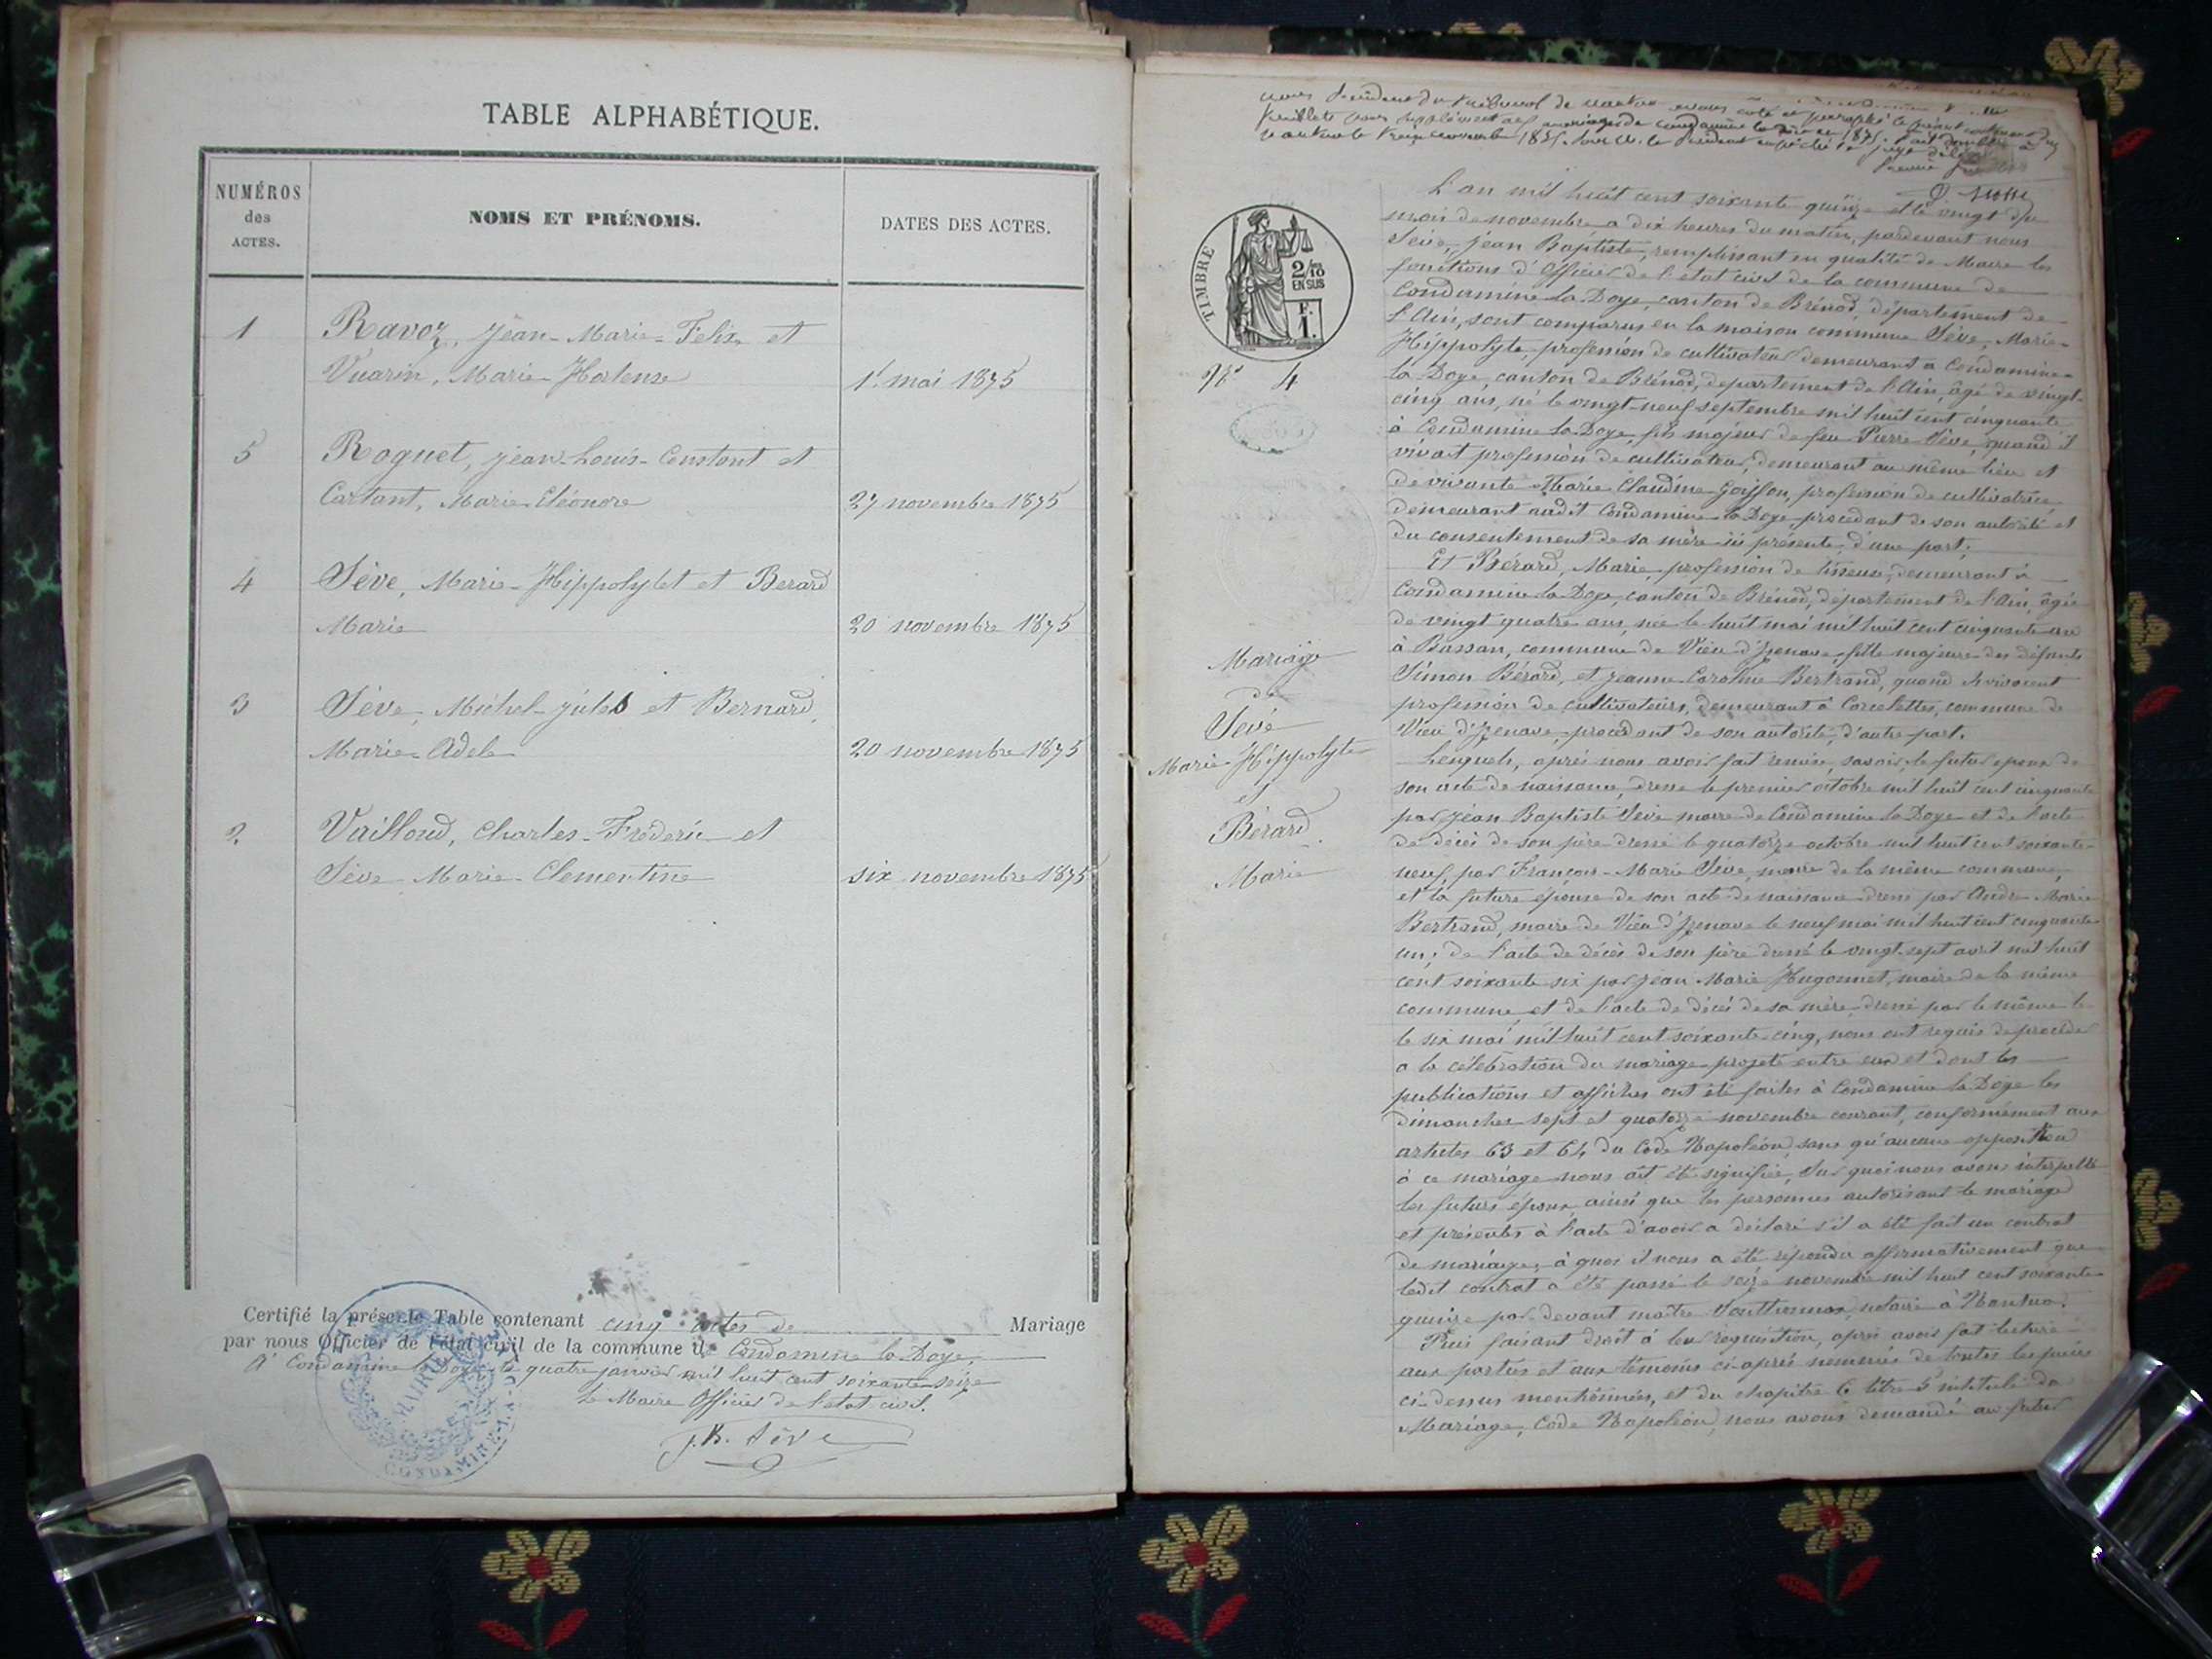 TABLE ALPHABÉTIQUE.
NUMÉROS
des
ACTES.
NOMS ET PRÉNOMS.
DATES DES ACTES.
1 Ravoz, Jean-Marie-Felix et
Vuarin, Marie-Hortense 1er mai 1875
5 Roguet, Jean-Louis-Constant et
Cartant, Marie-Eléonore 27 novembre 1875
4 Sève, Marie-Hippolytet et Berard
Marie 20 novembre 1875
3 Sève, Michel-Jules et Bernard,
Marie-Adele 20 novembre 1875
2 Vailloud, Charles-Frédéric et
Sève Marie-Clementine six novembre 1875
Certifié la présente Table contenant cinq actes de Mariage
par nous Officier de l'état civil de la commune de Condamine la Doye,
A Condamine la Doye le quatre janvier mil huit cent soixante-seize
Le Maire Officier de l'état civil.
J.B. Sève
MAIRIE
TIMBRE
2/10
EN SUS
F.
1.
N° 4
Mariage
de
Sève
Marie-Hippolyte
et
Bérard
Marie
L'an mil huit cent soixante quinze et le vingt du
mois de novembre a dix heures du matin, pardevant nous
Sève, Jean Baptiste, remplissant en qualité de Maire les
fonctions d'Officier de l'état civil de la commune de
Condamine la Doye, canton de Brénod, département de
l'Ain, sont comparus en la maison commune Sève, Marie-
Hippolyte, profession de cultivateur demeurant a Condamine
la Doye, canton de Brénod, département de l'Ain, âgé de vingt-
cinq ans, né le vingt-neuf septembre mil huit cent cinquante
à Condamine la Doye, fils majeur de feu Pierre Sève, quand il
vivait profession de cultivateur, demeurant au même lieu et
de vivante Marie Claudine Goiffon, profession de cultivatrice
demeurant audit Condamine la Doye, procédant de son autorité et
du consentement de sa mère ici présente, d'une part;
Et Bérard, Marie, profession de tisseuse, demeurant à
Condamine la Doye, canton de Brénod, département de l'Ain, âgée
de vingt quatre ans, née le huit mai mil huit cent cinquante un
à Bassan, commune de Vieu d'Izenave, fille majeure des défunts
Simon Bérard, et Jeanne-Caroline Bertrand, quand ils vivaient
profession de cultivateurs, demeurant à Corcelettes, commune de
Vieu d'Izenave, procédant de son autorité, d'autre part.
Lesquels, après nous avoir fait remise, savoir, le futur époux de
son acte de naissance, dressé le premier octobre mil huit cent cinquante
par Jean Baptiste Sève maire de Condamine la Doye et de l'acte
de décès de son père dressé le quatorze octobre mil huit cent soixante-
neuf, par François-Marie Sève, maire de la même commune,
et la future épouse de son acte de naissance dressé par André-Marie
Bertrand, maire de Vieu d'Izenave le neuf mai mil huit cent cinquante
un; de l'acte de décès de son père dressé le vingt-sept avril mil huit
cent soixante six par Jean Marie Hugonnet, maire de la même
commune et de l'acte de décès de sa mère dressé par le même le
le six mai mil huit cent soixante-cinq, nous ont requis de procéder
a la célébration du mariage projeté entre eux et dont les
publications et affiches ont été faites à Condamine la Doye les
dimanches sept et quatorze novembre courant, conformément aux
articles 63 et 64 du Code Napoléon, sans qu'aucune opposition
à ce mariage nous ait été signifiée, Sur quoi nous avons interpellé
les futurs époux ainsi que les personnes autorisant le mariage
et présentes à l'acte d'avoir a déclaré s'il a été fait un contrat
de mariage, à quoi il nous a été répondu affirmativement que
ledit contrat a été passé le seize novembre mil huit cent soixante
quinze par devant maître notaire à Nantua.
Puis faisant droit à leur réquisition, après avoir fait lecture
aux parties et aux témoins ci-après nommés de toutes les pièces
ci-dessus mentionnées, et du chapitre 6 titre 5 intitulé du
Mariage, Code Napoléon, nous avons demandé au futur